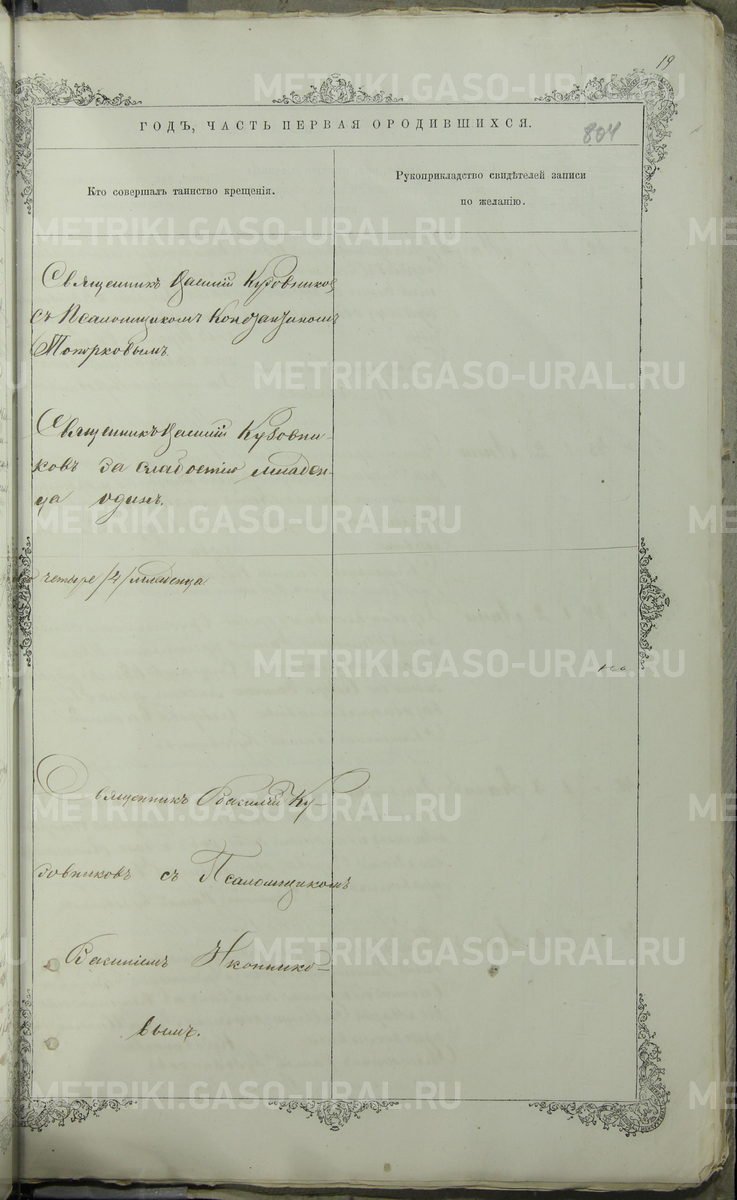 19
ГОДЪ, ЧАСТЬ ПЕРВАЯ О РОДИВШИХСЯ.
804
Кто совершалъ таинство крещенія.
Рукоприкладство свидѣтелей записи
по желанію.
Священникъ Василій Кузовников
съ Псаломщикомъ Константиномъ
Топорковымъ
Священникъ Василій Кузовни-
ковъ за слабостію младен-
ца одинъ.
четыре /4/ младенца
Священникъ Василій Ку-
зовниковъ съ Псаломщикомъ
Василіемъ Иконнико-
вымъ.
METRIKI.GASO-URAL.RU